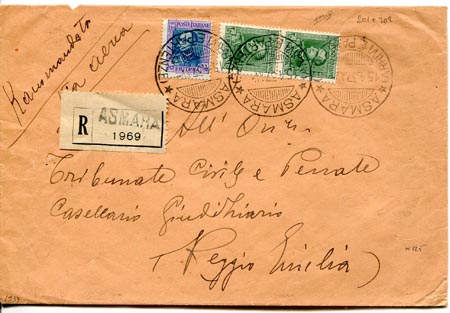 Raccomandata
Via aerea
POSTE ITALIANE
201+202
ASMARA
ASMARA
ASMARA
R
ASMARA
1969
All' On.
Tribunale Civile e Penale
Casellario Giudiziario
(Reggio Emilia)